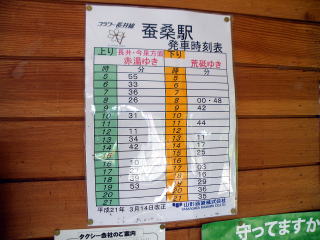 フラワー長井線
蚕桑駅
発車時刻表
上り 長井・今泉方面 下り
赤湯ゆき 荒砥ゆき
時 分 時 分
5 55 5
6 33 6
7 36 7
8 26 8 00・48
9 9 42
10 31 10
11 11 44
12 11 12
13 34 13
14 42 14 17
15 15 25
16 16
17 17
18 18
19 19
20 53 20 36
21 21 35
平成21年 3月14日改正
山形鉄道株式会社
タクシー会社のご案内
守ってますか